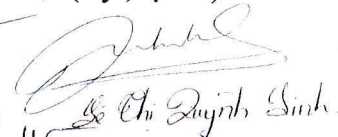 Lê Thị Quỳnh Linh